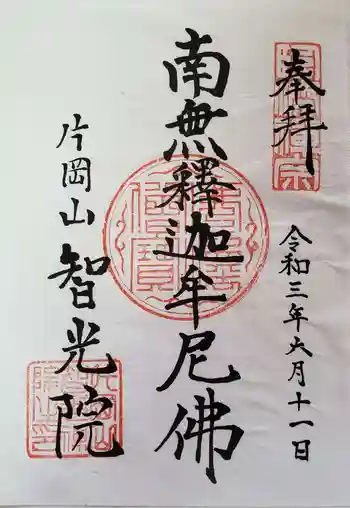 奉拝
令和三年六月十一日
南無釋迦牟尼佛
片岡山
智光院